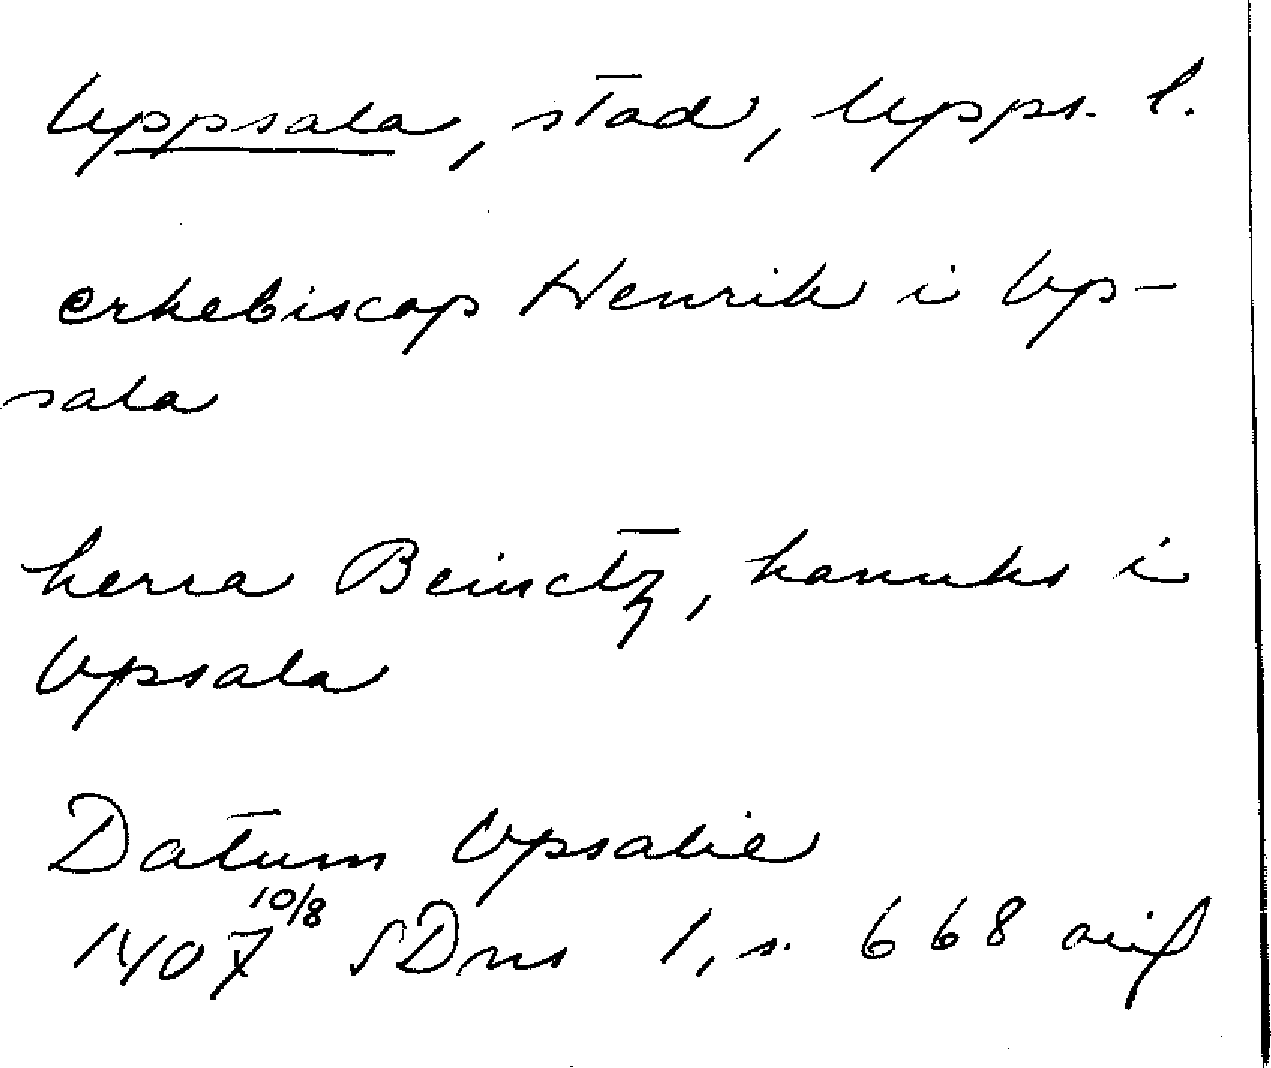 Uppsala, stad, Upps. l.
erkebiscop Henrik i Vp-
sala
herra Beinctz, kanuks i
Vpsala
Datum Vpsalie
1407 10/8 SDns 1, s. 668